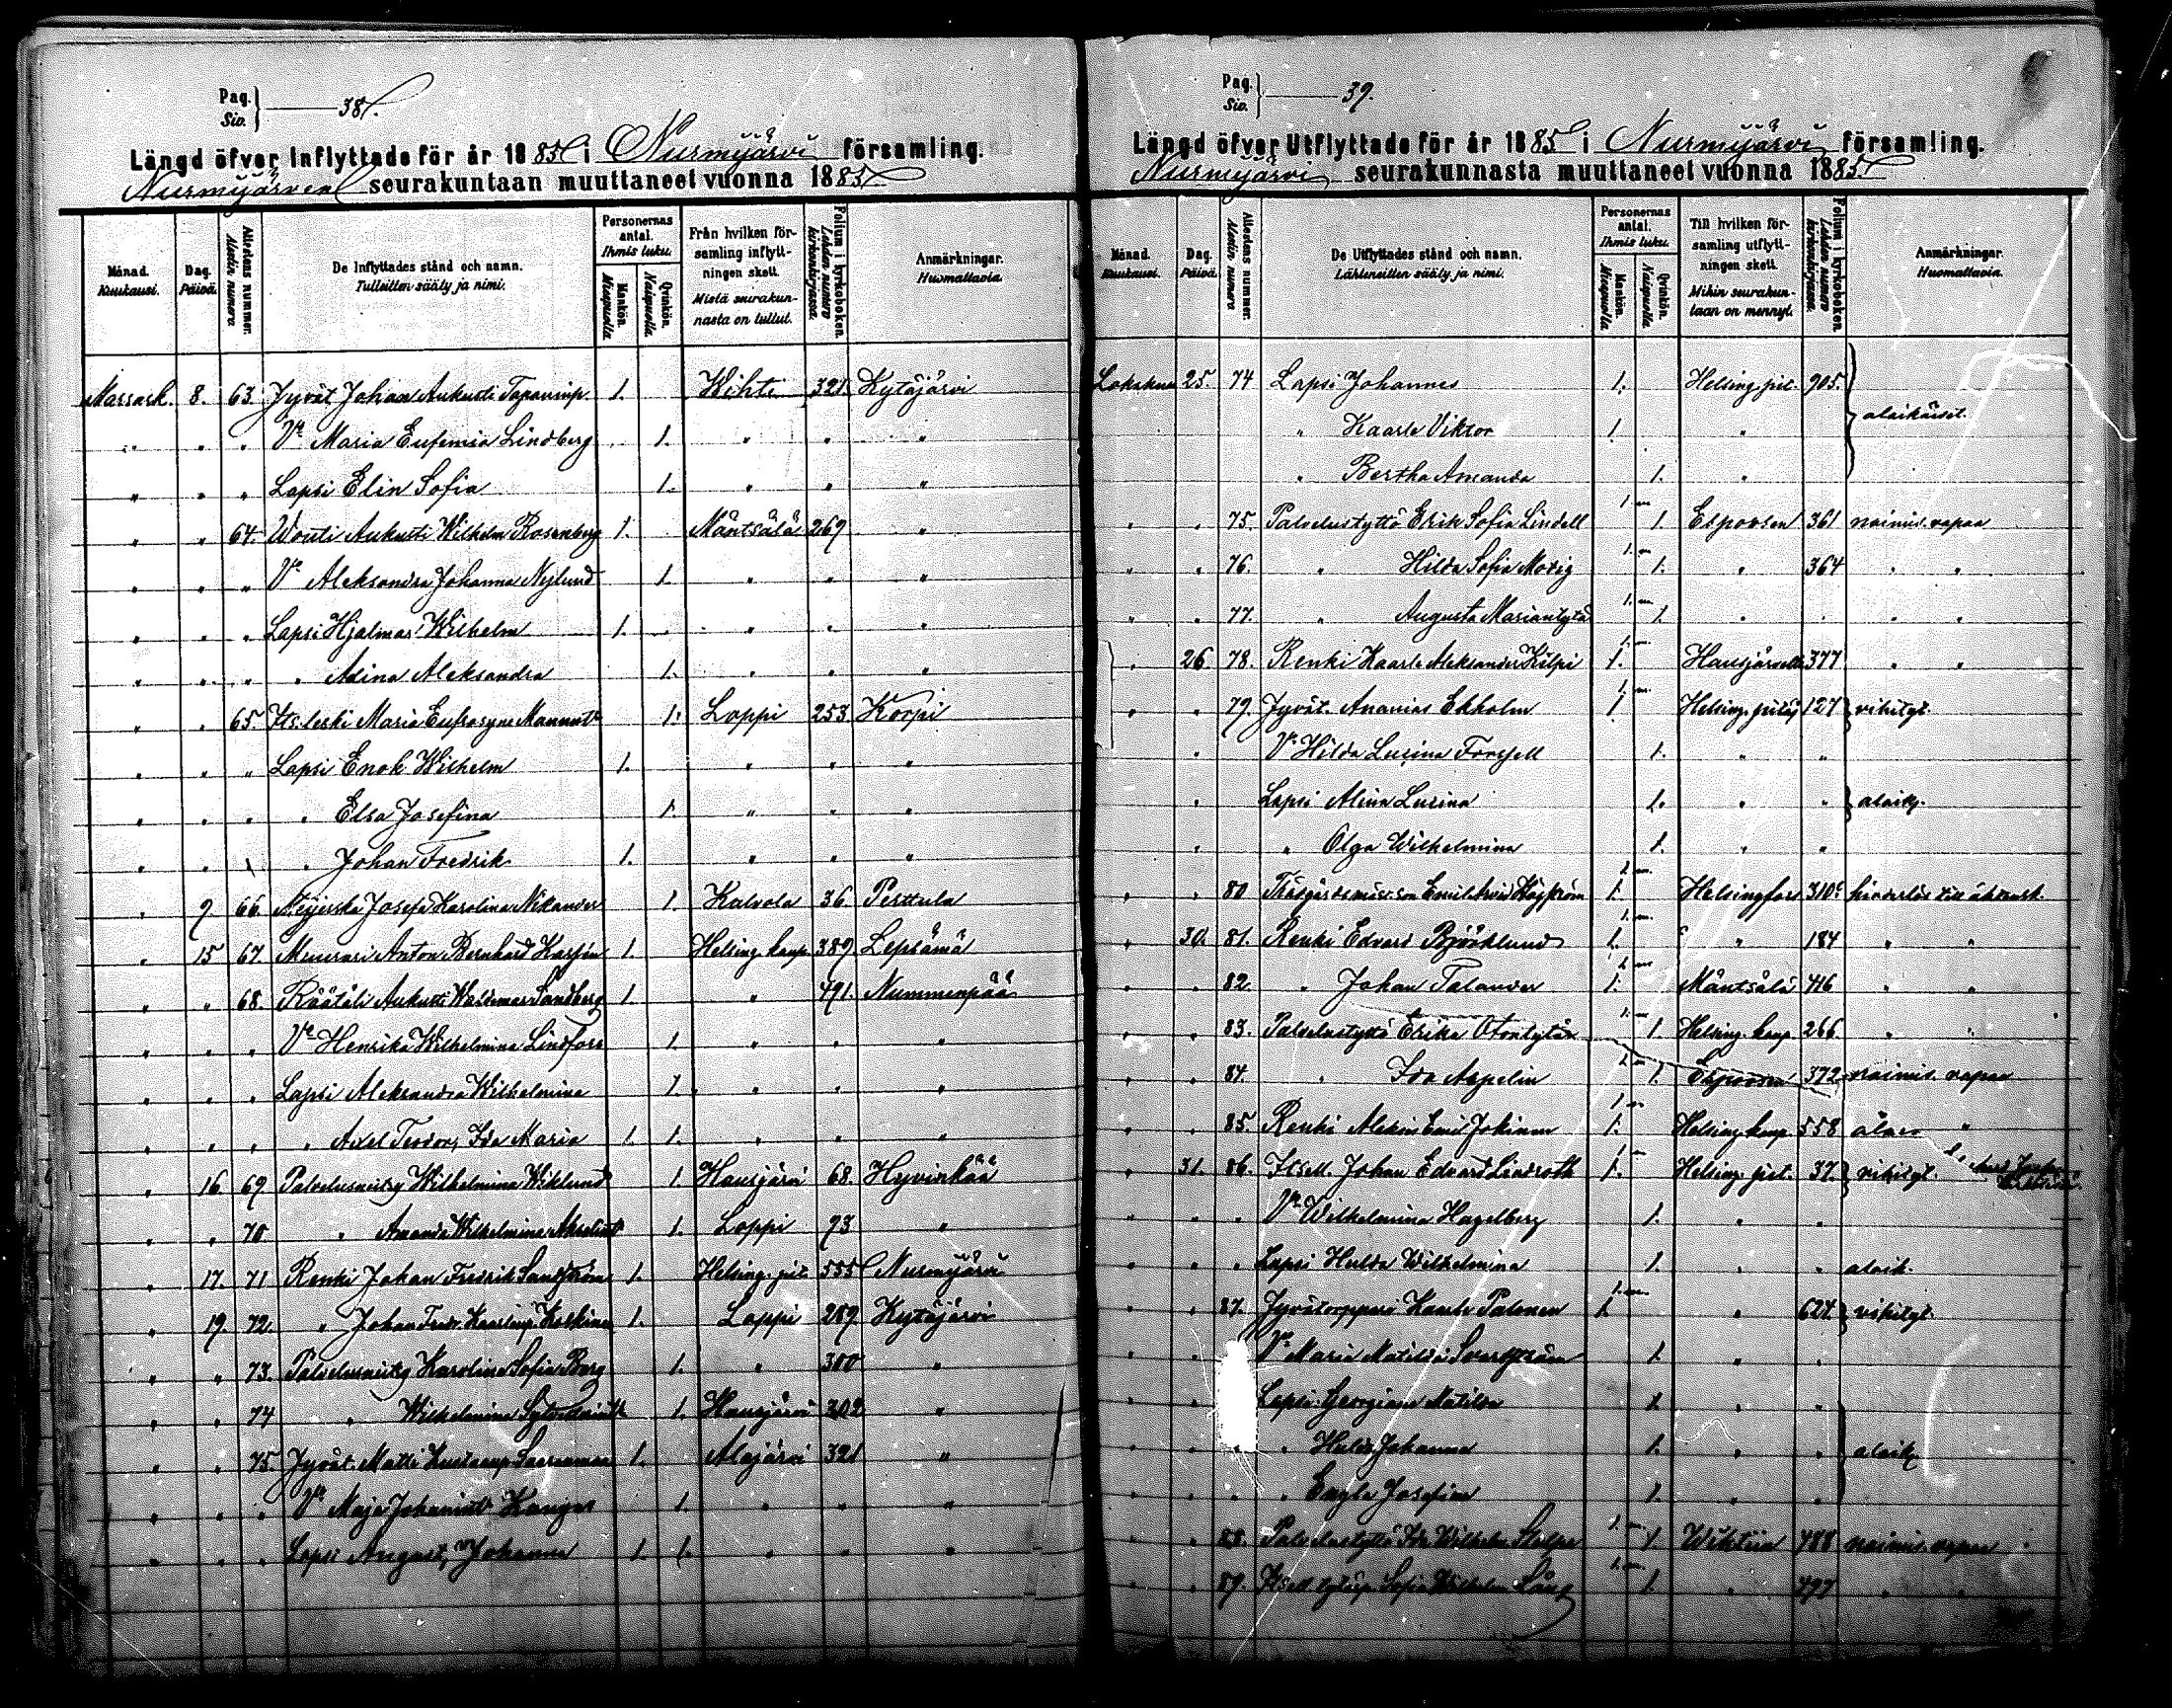 Pag. Siv. } 38.
Längd öfver Inflyttade för år 1885 i Nurmijärvi församling.
Nurmijärven seurakuntaan muuttaneet vuonna 1885
Månad. Kuukausi. | Dag. Päivä. | Attestens nummer. Atestin numero | De Inflyttades stånd och namn. Tulleitten sääty ja nimi. | Personernas antal. Ihmis luku. Mankön. Miespuolia Qvinkön. Naispuolia | Från hvilken församling inflyttningen skett. Mistä seurakunnasta on tullut. | Folium i kyrkoboken. Lehden numero kirkonkirjassa. | Anmärkningar. Huomattavia.
Marrask. 8. 63. Jyvät Johan Aukusti Tapaninp. 1. Wihti 321. Kytäjärvi
" " " Vo Maria Eufemia Lindberg 1. " " "
" " " Lapsi Elin Sofia 1. " " "
" " 64. Wouti Aukusti Wilhelm Rosenberg 1. Mäntsälä 269 "
" " " Vo Aleksandra Johanna Nylund 1. " " "
" " " Lapsi Hjalmar Wilhelm 1. " " "
" " " " Adina Aleksandra 1. " " "
" " 65. Its. leski Maria Eufrosyne Mannunt. 1. Loppi 253 Korpi
" " " Lapsi Enok Wilhelm 1. " " "
" " " " Elsa Josefina 1. " " "
" " " " Johan Fredrik 1. " " "
" 9. 66. Josefa Karolina Nikander 1. Kalvola 36. Perttula
" 15 67. Muurari Anton Bernhard 1. Helsing. kaup. 389. Lepsämä
" " 68. Räätäli Aukusti Waldemar Sandberg 1. " 491. Nummenpää
" " " Vo Henrika Wilhelmina Lindfors 1. " " "
" " " Lapsi Aleksandra Wilhelmina 1. " " "
" " " " Axel Teodor, Ida Maria 1. 1. " " "
" 16. 69 Palvelusneitsy Wilhelmina Wiklund 1. Hausjärvi 68. Hyvinkää
" " 70 " Amanda Wilhelmina 1. Loppi 93 "
" 17. 71 Renki Johan Fredrik Sandström 1. Helsing. pit. 555 Nurmijärvi
" 19. 72. " Johan Fredr. Kaarlenp. Koskinen 1. Loppi 289 Kytäjärvi
" " 73. Palvelusneitsy Karolina Sofia Borg 1. " 300 "
" " 74 " Wilhelmina 1. Hausjärvi 202 "
" " 75. Jyvät. Matti Kustaanp. Saarenmaa 1. Alajärvi 321 "
" " " Vo Maja Johanint. Kangas 1. " " "
" " " Lapsi August, Johanna 1. 1. " " "
Pag. Siv. } 39.
Längd öfver Utflyttade för år 1885 i Nurmijärvi församling.
Nurmijärvi seurakunnasta muuttaneet vuonna 1885
Månad. Kuukausi. | Dag. Päivä. | Attestens nummer. Atestin numero | De Utflyttades stånd och namn. Lähteneitten sääty ja nimi. | Personernas antal. Ihmis luku. Mankön. Miespuolia Qvinkön. Naispuolia | Till hvilken församling utflyttningen skett. Mihin seurakuntaan on mennyt. | Folium i kyrkoboken. Lehden numero kirkonkirjassa. | Anmärkningar. Huomattavia.
Lokakuu 25. 74 Lapsi Johannes 1. Helsing. pit. 905. } alaikäiset
" Kaarle Viktor 1. "
" Bertha Amanda 1. "
" " 75. Palvelustyttö Erik Sofia Lindell 1. Espoosen 361 naimis. vapaa
" " 76. " Hilda Sofia Modig 1. " 364 " "
" " 77. " Augusta Mariantytä 1. " " " "
" 26. 78. Renki Kaarle Aleksander Kilpi 1. Hausjärvelle 377 " "
" 79. Jyvät. Ananias Ekholm 1. Helsing. pitäj. 127 } vihityt
" Vo Hilda Lusina Forssell 1. " "
" Lapsi Alina Lusina 1. " " } alaikj.
" " Olga Wilhelmina 1. " "
" " 80 Emil Arvid Högström 1. Helsingfors 310 hinderlös till äktensk.
" 30. 81. Renki Edvard Björklund 1. " 184 " "
" " 82. " Johan Talander 1. Mäntsälä 416 " "
" " 83. Palvelustyttö Erika Otontytär 1. Helsing. kaup. 266. " "
" " 84. " Ida Aspelin 1. Espoosen 372 naimis. vapaa
" " 85. Renki Aleksi Emil Jokinen 1. Helsing. kaup. 558 "
" 31. 86. Itsell. Johan Edvard Lindroth 1. Helsing. pit. 37. } vihityt.
" " " Vo Wilhelmina Hagelberg 1. " "
" " " Lapsi Hulda Wilhelmina 1. " " alaik.
" " 87. Jyvätorppari Kaarle Palonen 1. " 627. } vihityt.
" " Vo Maria Matilda 1. " "
" " Lapsi Georgiana Matilda 1. " "
" " " Hulda Johanna 1. " " } alaik.
" " " Josefina 1. " "
" " 88. Palvelustyttö Ida Wilhelm. 1. Wihtiin 488 naimis. vapaa
" " 89. Itsell. Sofia Wilhelm. Lång 1. " 497 " "